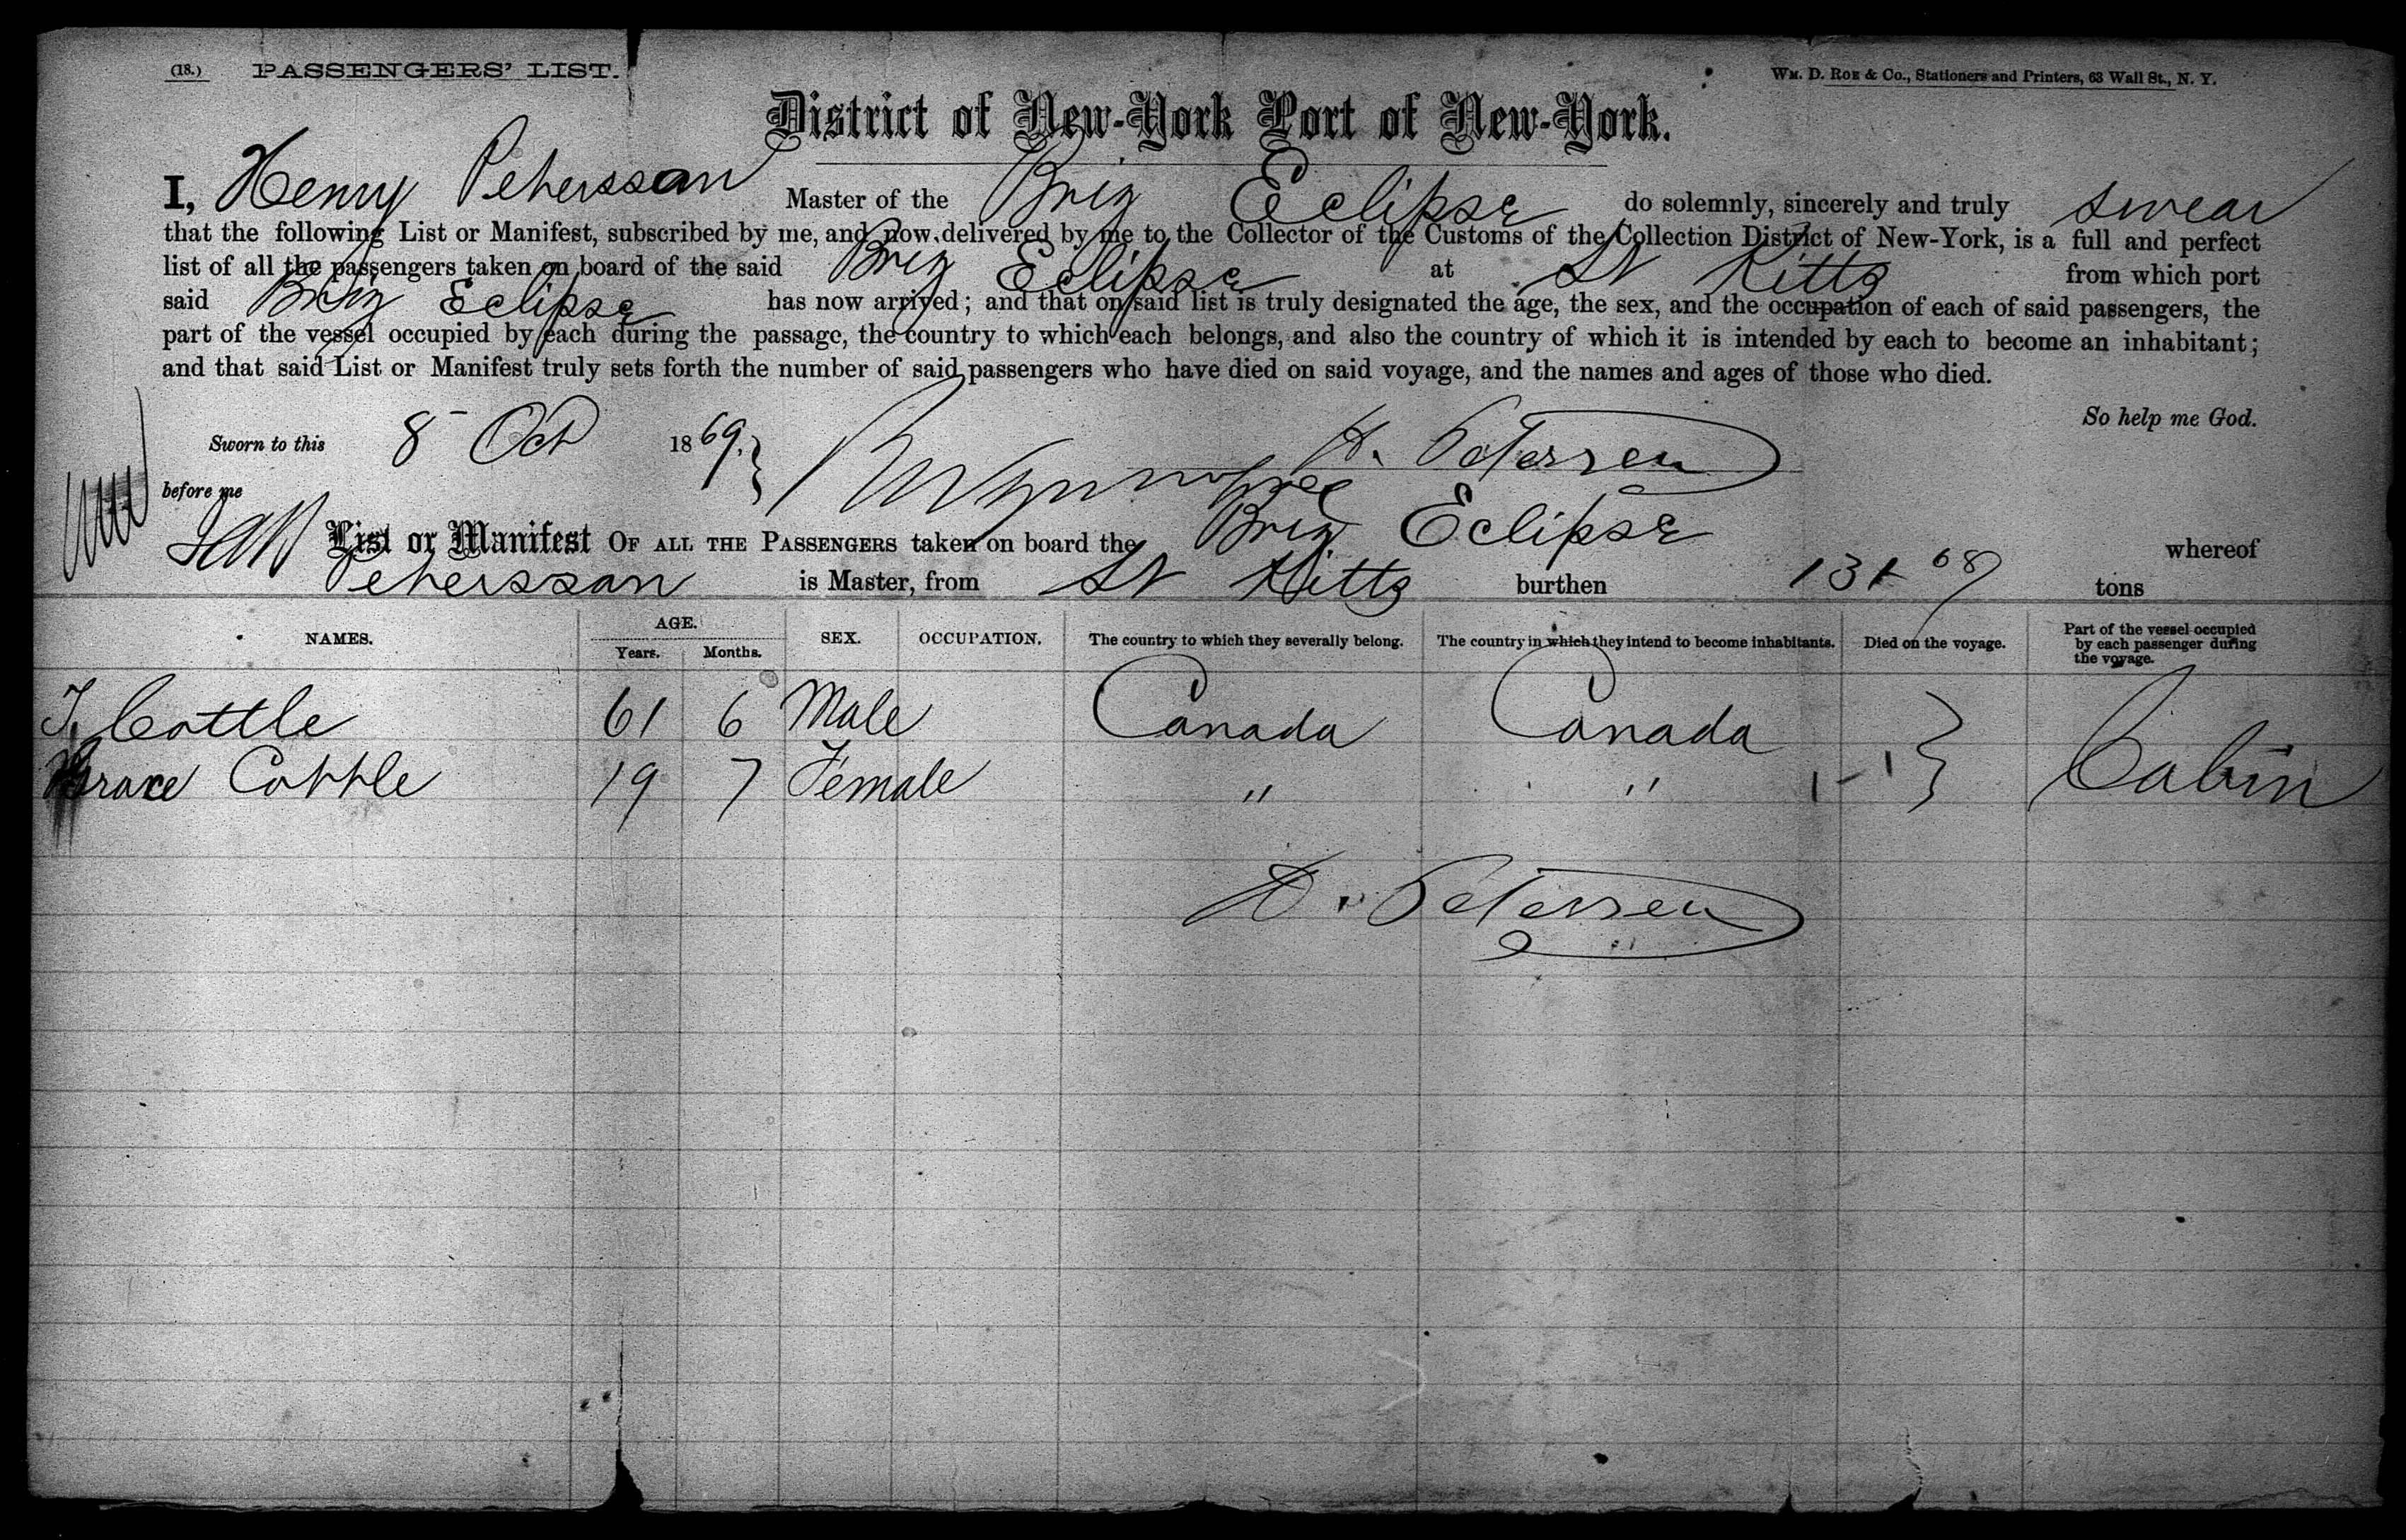 (18.) PASSENGERS' LIST.
Wm. D. Roe & Co., Stationers and Printers, 63 Wall St., N. Y.
District of New-York Port of New-York.
I, Henry Peterssan Master of the Brig Eclipse do solemnly, sincerely and truly swear
that the following List or Manifest, subscribed by me, and now delivered by me to the Collector of the Customs of the Collection District of New-York, is a full and perfect
list of all the passengers taken on board of the said Brig Eclipse at St Kitts from which port
said Brig Eclipse has now arrived; and that on said list is truly designated the age, the sex, and the occupation of each of said passengers, the
part of the vessel occupied by each during the passage, the country to which each belongs, and also the country of which it is intended by each to become an inhabitant;
and that said List or Manifest truly sets forth the number of said passengers who have died on said voyage, and the names and ages of those who died.
So help me God.
Sworn to this 8 Oct 1869. H. Peterssen
before me
List or Manifest OF ALL THE PASSENGERS taken on board the Brig Eclipse whereof
Peterssan is Master, from St Kitts burthen 131 68 tons
NAMES. AGE. Years. Months. SEX. OCCUPATION. The country to which they severally belong. The country in which they intend to become inhabitants. Died on the voyage. Part of the vessel occupied by each passenger during the voyage.
T. Cottle 61 6 Male Canada Canada Cabin
Grace Cottle 19 7 Female " "
H. Peterssen